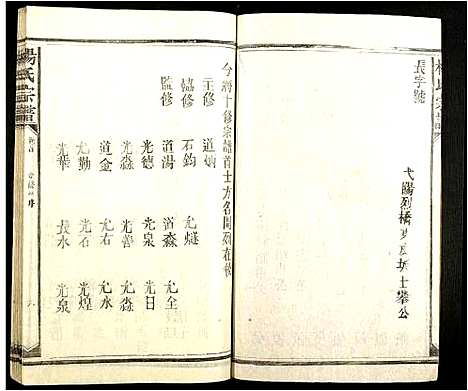 長字號
弋陽烈橋
士攀公
今將十修宗譜首士方名開列在後
主修 道炳
協修 石鈞 光燧
監修 道湯 道森 光全
光德 光泉 光日
光淼 光善 光淼
道金 光石 光水
光勤 光煌
光華 長水 光泉
楊氏宗譜